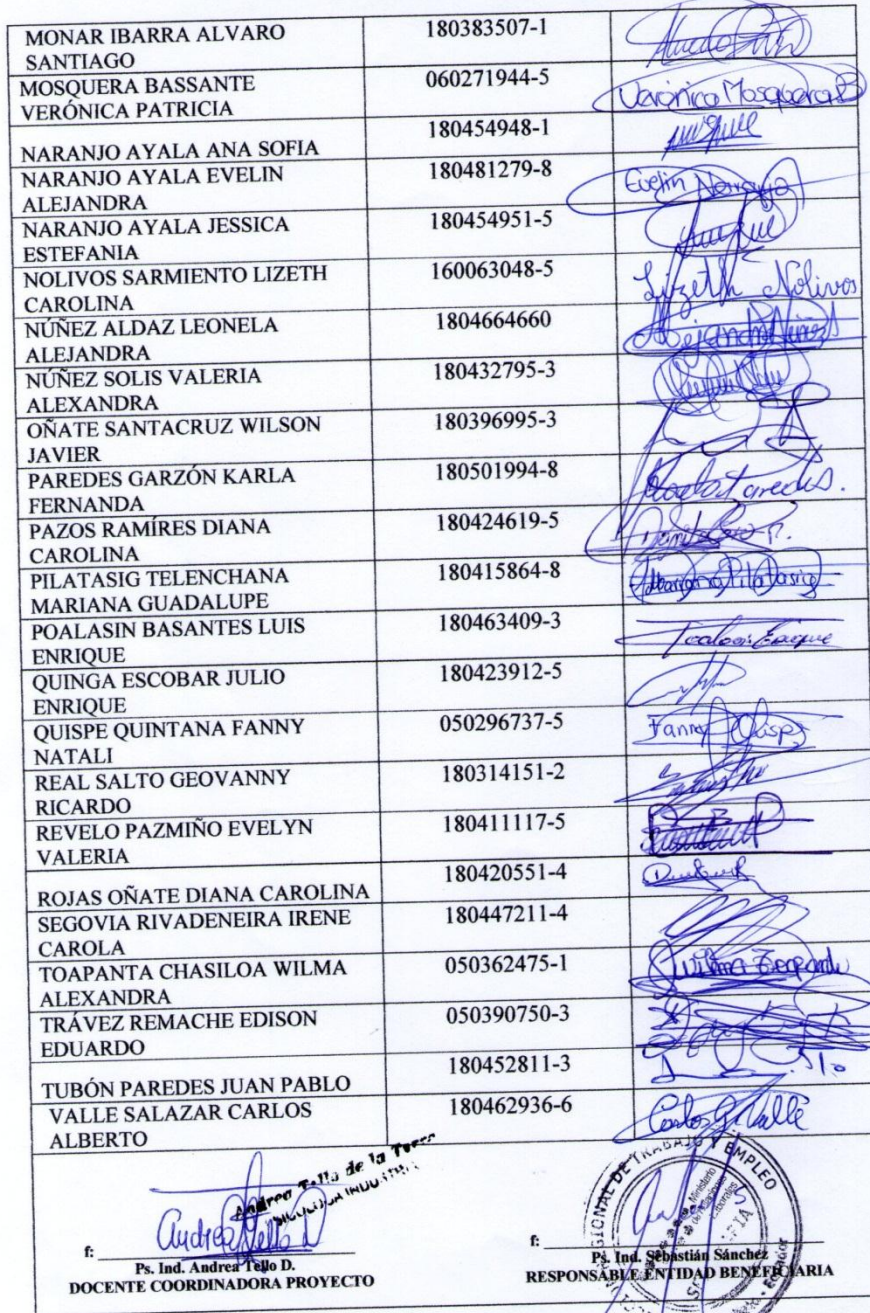 MONAR IBARRA ALVARO SANTIAGO 180383507-1
MOSQUERA BASSANTE VERÓNICA PATRICIA 060271944-5 Verónica Mosquera B
NARANJO AYALA ANA SOFIA 180454948-1
NARANJO AYALA EVELIN ALEJANDRA 180481279-8 Evelin Naranjo
NARANJO AYALA JESSICA ESTEFANIA 180454951-5
NOLIVOS SARMIENTO LIZETH CAROLINA 160063048-5 Lizeth Nolivos
NÚÑEZ ALDAZ LEONELA ALEJANDRA 1804664660 Alejandra Núñez
NÚÑEZ SOLIS VALERIA ALEXANDRA 180432795-3
OÑATE SANTACRUZ WILSON JAVIER 180396995-3
PAREDES GARZÓN KARLA FERNANDA 180501994-8 Paredes.
PAZOS RAMÍRES DIANA CAROLINA 180424619-5
PILATASIG TELENCHANA MARIANA GUADALUPE 180415864-8 Mariana Pilatasig
POALASIN BASANTES LUIS ENRIQUE 180463409-3
QUINGA ESCOBAR JULIO ENRIQUE 180423912-5
QUISPE QUINTANA FANNY NATALI 050296737-5 Fanny Quispe
REAL SALTO GEOVANNY RICARDO 180314151-2
REVELO PAZMIÑO EVELYN VALERIA 180411117-5
ROJAS OÑATE DIANA CAROLINA 180420551-4
SEGOVIA RIVADENEIRA IRENE CAROLA 180447211-4
TOAPANTA CHASILOA WILMA ALEXANDRA 050362475-1 Wilma
TRÁVEZ REMACHE EDISON EDUARDO 050390750-3
TUBÓN PAREDES JUAN PABLO 180452811-3
VALLE SALAZAR CARLOS ALBERTO 180462936-6 Carlos Valle
Andrea Tello de la Torre
PSICOLOGA INDUSTRIAL
Andrea Tello D
f:
Ps. Ind. Andrea Tello D.
DOCENTE COORDINADORA PROYECTO
DE TRABAJO Y EMPLEO
Ministerio
de Relaciones
Laborales
Ecuador
f:
Ps. Ind. Sebastián Sánchez
RESPONSABLE ENTIDAD BENEFICIARIA